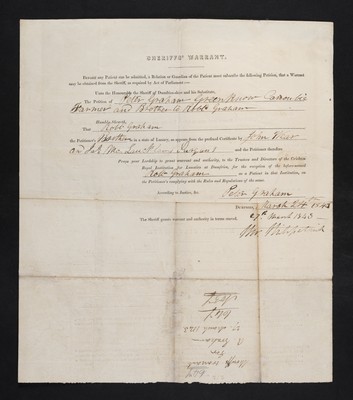 SHERIFFS' WARRANT.
Before any Patient can be admitted, a Relation or Guardian of the Patient must subscribe the following Petition, that a Warrant
may be obtained from the Sheriff, as required by Act of Parliament:—
Unto the Honourable the Sheriff of Dumfries-shire and his Substitutes,
The Petition of Peter Graham
Farmer and Brother to Robt Graham
Humbly Sheweth,
That Robt Graham
the Petitioner's Brother is in a state of Lunacy, as appears from the prefixed Certificate by John
and Surgeons and the Petitioner therefore
Prays your Lordship to grant warrant and authority, to the Trustees and Directors of the Crichton
Royal Institution for Lunatics at Dumfries, for the reception of the beforenamed
Robt Graham as a Patient in that Institution, on
the Petitioner's complying with the Rules and Regulations of the same.
According to Justice, &c.
Peter Graham
Dumfries, March 27th 1843
The Sheriff grants warrant and authority in terms craved.
27th March 1843
Thos Kirkpatrick